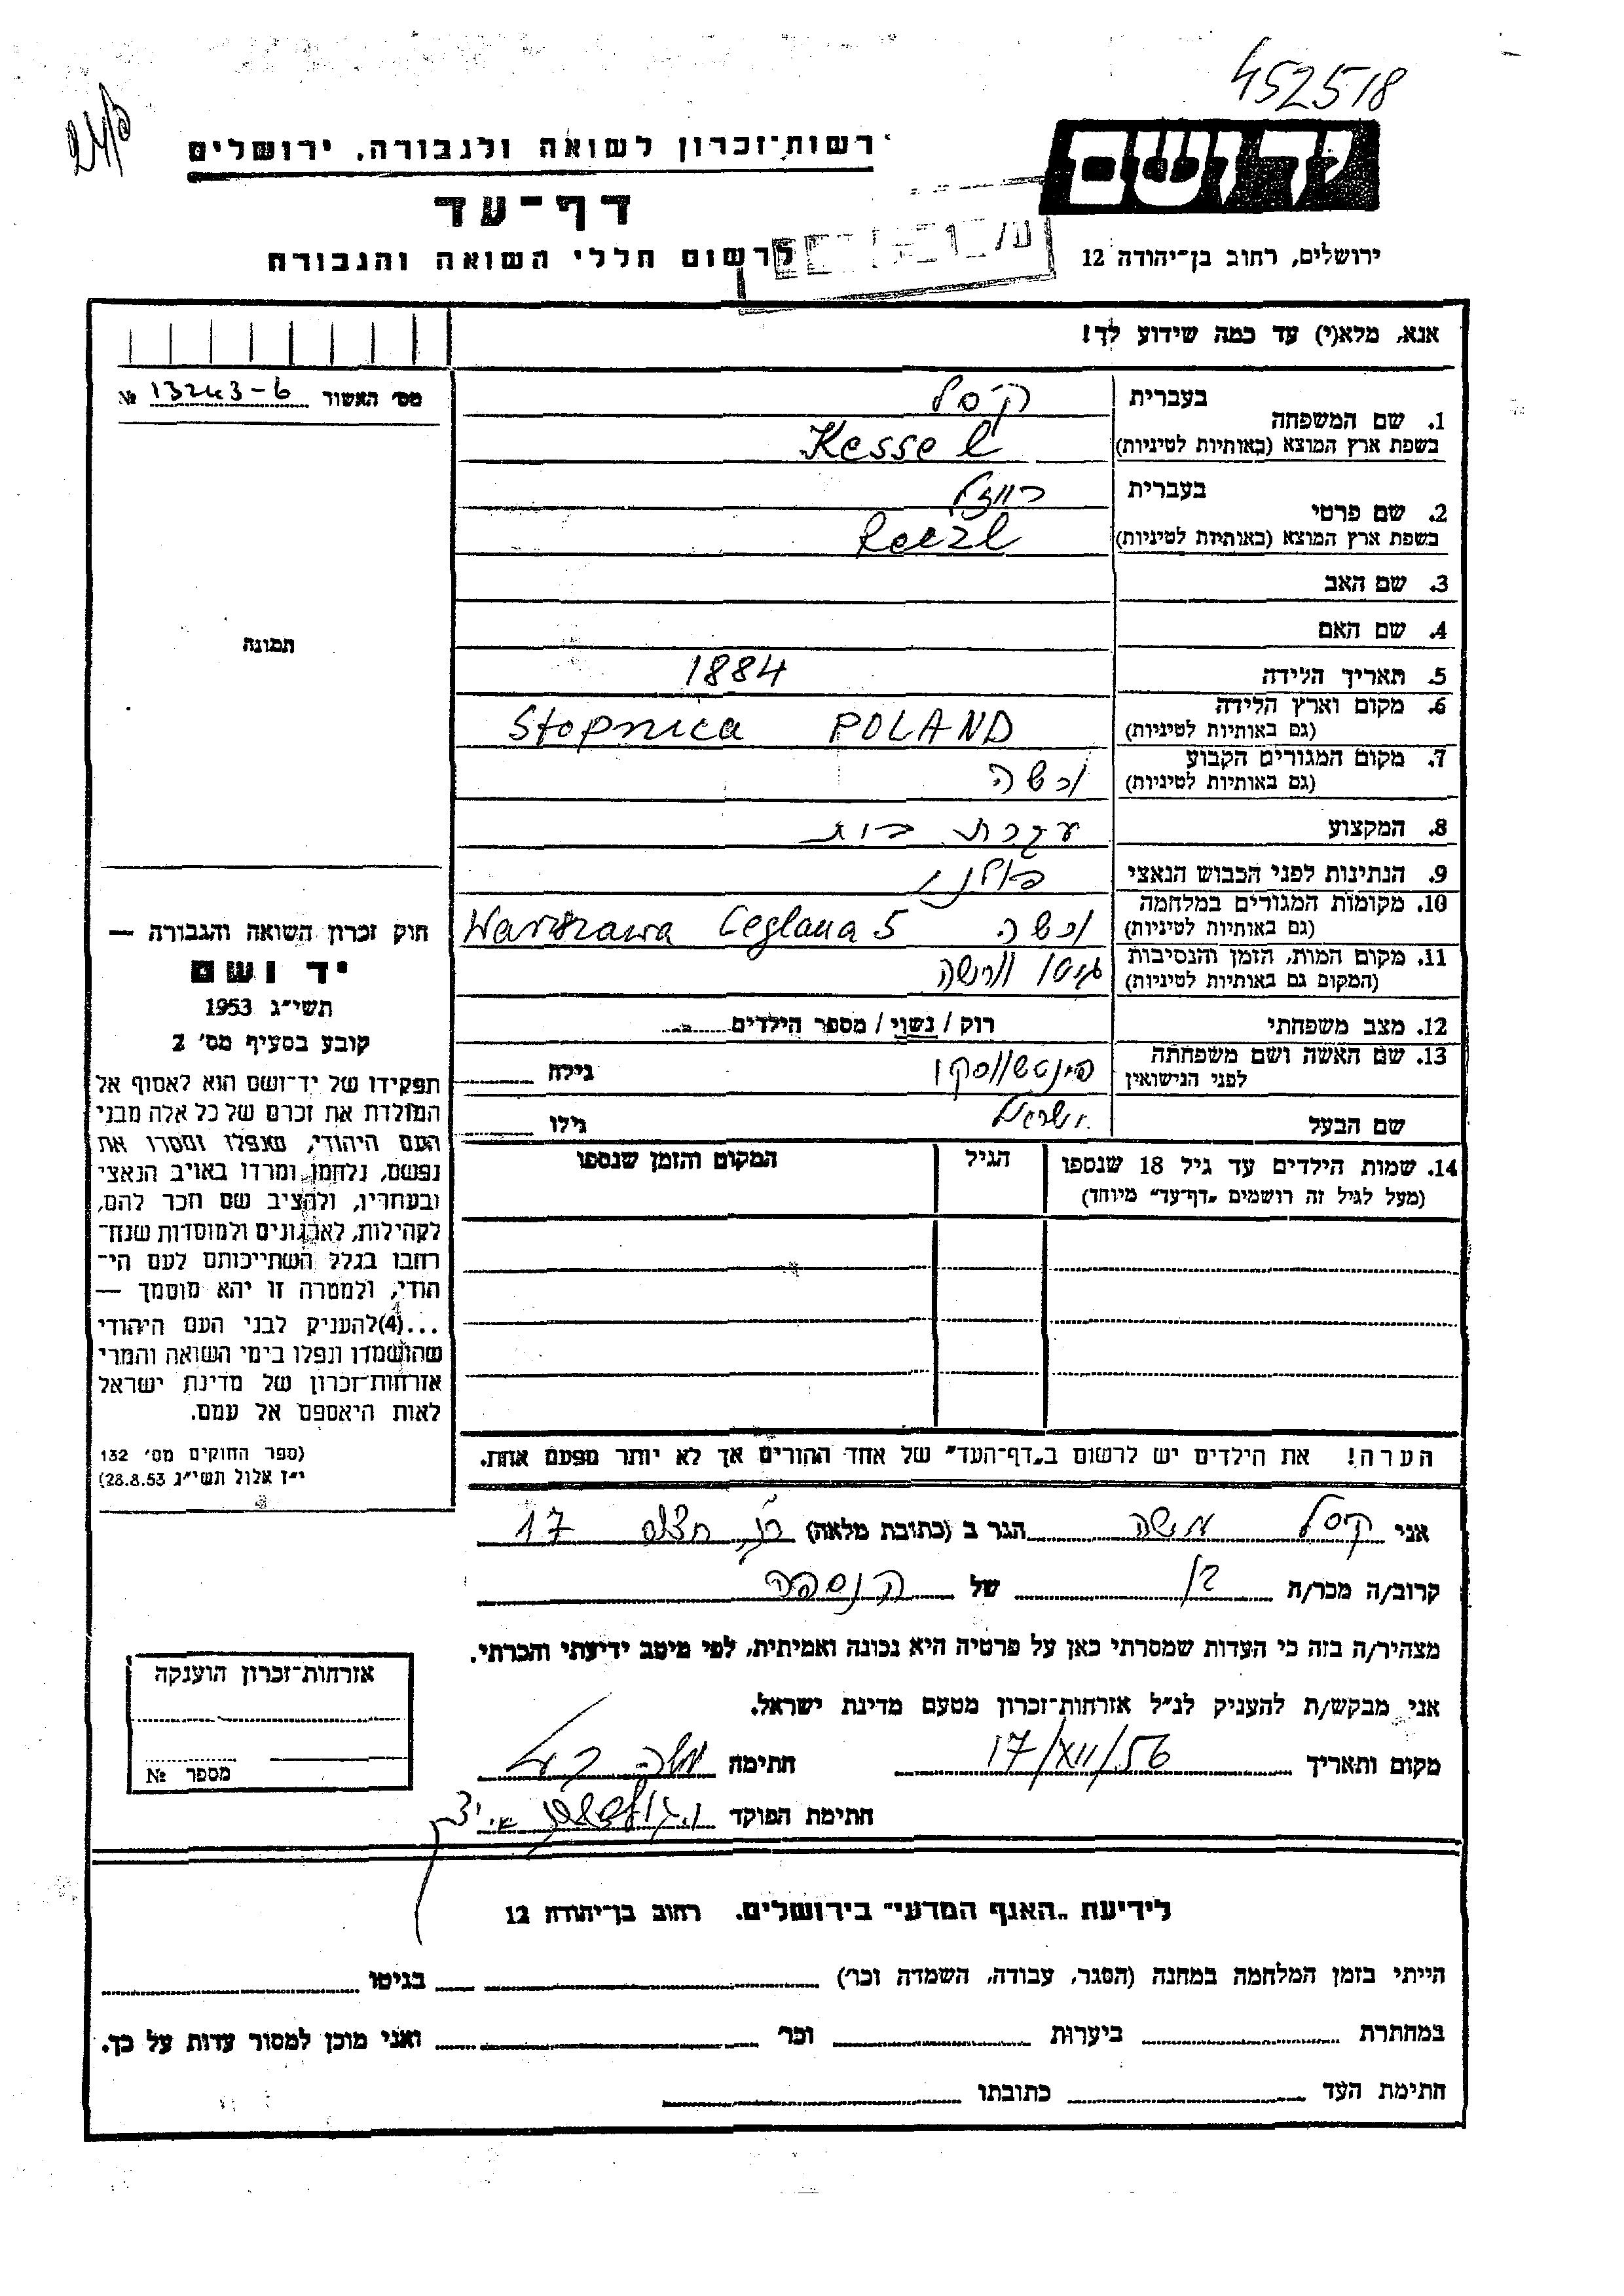 452518
רשות־זכרון לשואה ולגבורה, ירושלים
יד ושם
דף־עד
לרשום חללי השואה והגבורה
ירושלים, רחוב בן־יהודה 12
אנא, מלא(י) עד כמה שידוע לך!
מס׳ האשור 13243-6 №
1. שם המשפחה בעברית קסל
בשפת ארץ המוצא (באותיות לטיניות) Kessel
2. שם פרטי בעברית רייזל
בשפת ארץ המוצא (באותיות לטיניות) Reezl
3. שם האב
4. שם האם
תמונה
5. תאריך הלידה 1884
6. מקום וארץ הלידה (גם באותיות לטיניות) Stopnica POLAND
7. מקום המגורים הקבוע (גם באותיות לטיניות) ורשה
8. המקצוע עקרת בית
9. הנתינות לפני הכבוש הנאצי פולנית
10. מקומות המגורים במלחמה (גם באותיות לטיניות) ורשה Warszawa Ceglana 5
11. מקום המות, הזמן והנסיבות (המקום גם באותיות לטיניות) גיטו וורשה
12. מצב משפחתי רוק / נשוי / מספר הילדים
13. שם האשה ושם משפחתה לפני הנישואין פינטשווסקי גילה
שם הבעל ישראל גילו
14. שמות הילדים עד גיל 18 שנספו הגיל המקום והזמן שנספו
(מעל לגיל זה רושמים „דף־עד״ מיוחד)
חוק זכרון השואה והגבורה —
יד ושם
תשי״ג 1953
קובע בסעיף מס׳ 2
תפקידו של יד־ושם הוא לאסוף אל
המולדת את זכרם של כל אלה מבני
העם היהודי, שנפלו ומסרו את
נפשם, נלחמו ומרדו באויב הנאצי
ובעוזריו, ולהציב שם וזכר להם,
לקהילות, לארגונים ולמוסדות שנח־
רחבו בגלל השתייכותם לעם הי־
הודי, ולמטרה זו יהא מוסמך —
...(4) להעניק לבני העם היהודי
שהושמדו ונפלו בימי השואה והמרי
אזרחות־זכרון של מדינת ישראל
לאות היאספם אל עמם.
(ספר החוקים מס׳ 132
י״ז אלול תשי״ג 28.8.53)
הערה! את הילדים יש לרשום ב„דף־העד״ של אחד ההורים אך לא יותר מפעם אחת.
אני קיסל משה הגר ב (כתובת מלאה) 17
קרוב/ה מכר/ה בן של הנספה
מצהיר/ה בזה כי העדות שמסרתי כאן על פרטיה היא נכונה ואמיתית, לפי מיטב ידיעתי והכרתי.
אני מבקש/ת להעניק לנ״ל אזרחות־זכרון מטעם מדינת ישראל.
מקום ותאריך 17/XII/56 חתימה
חתימת הפוקד
אזרחות־זכרון הוענקה
מספר №
לידיעת „האגף המדעי״ בירושלים. רחוב בן־יהודה 12
הייתי בזמן המלחמה במחנה (הסגר, עבודה, השמדה וכר׳) בגיטו
במחתרת ביערות וכר׳ ואני מוכן למסור עדות על כך.
חתימת העד כתובתו